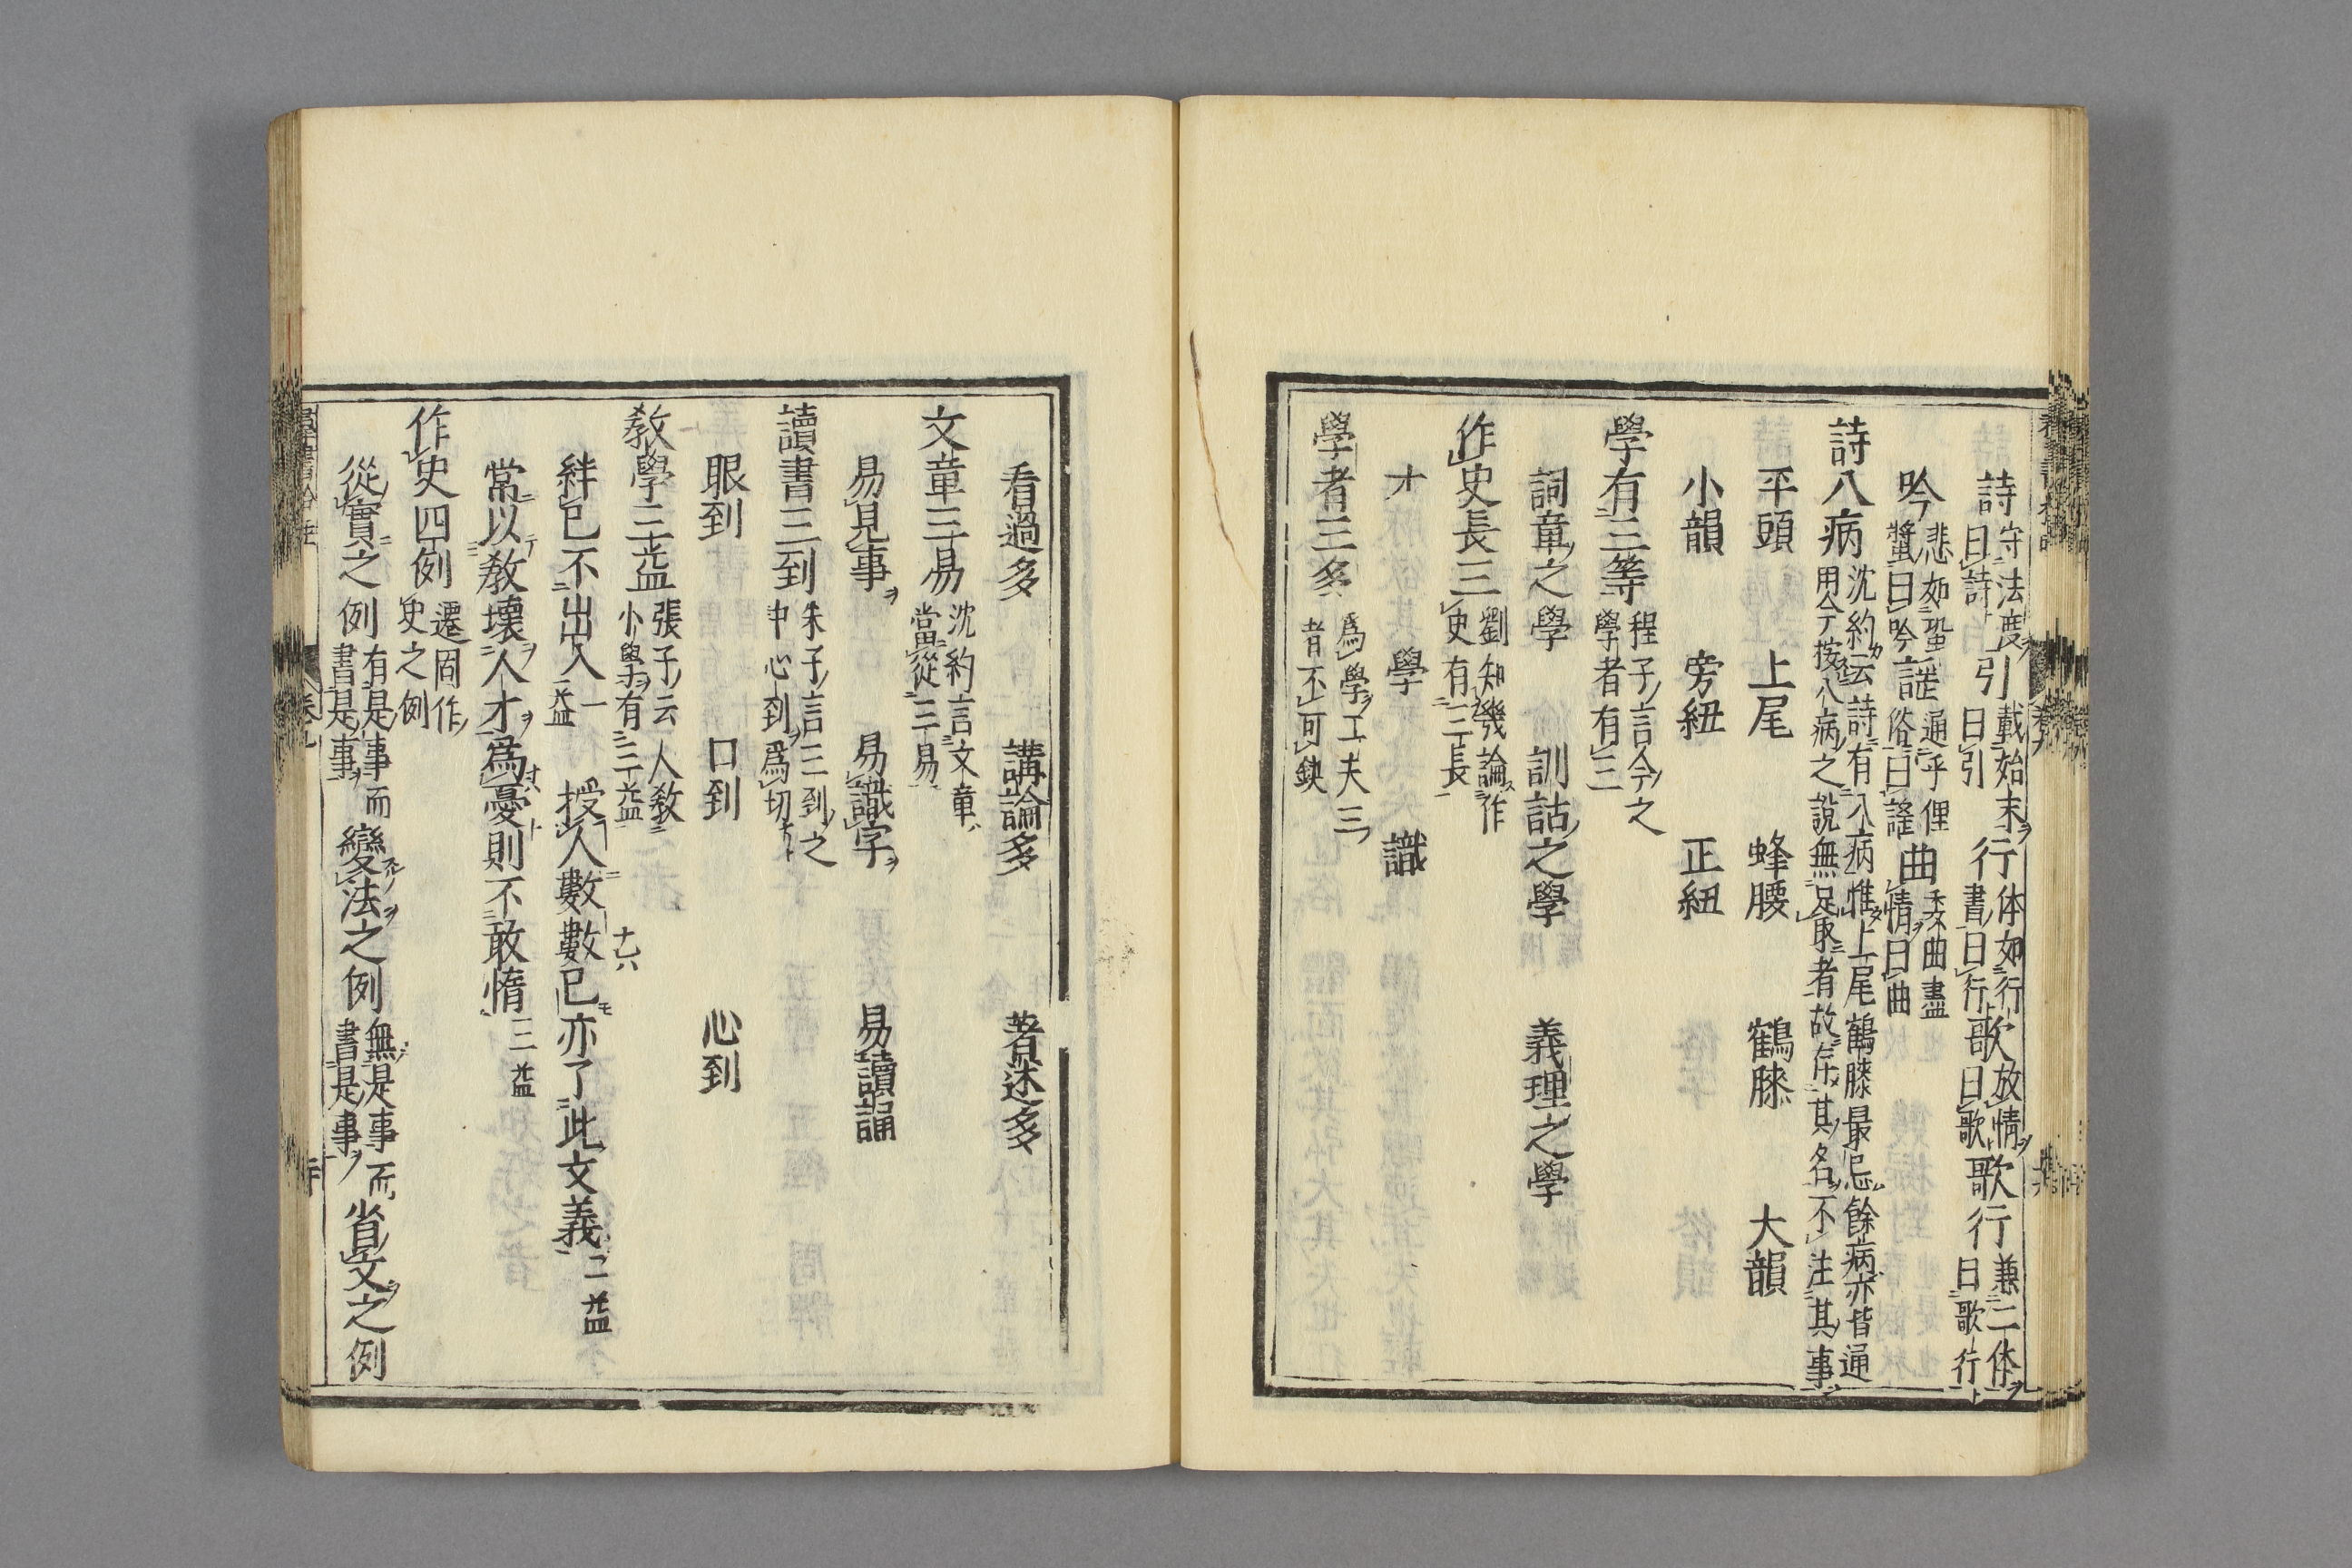 詩 守法度曰詩 引 載始末曰引 行 体如行書曰行 歌 放情曰歌 歌行 兼二体曰歌行
吟 悲如蛩螿曰吟 謡 通乎俚俗曰謡 曲 委曲盡情曰曲
詩八病 沈約云詩有八病惟上尾鶴膝最忌餘病亦皆通用今按八病之説無足取者故存其名不注其事
平頭 上尾 蜂腰 鶴膝 大韻
小韻 旁紐 正紐
學有三等 程子言今之學者有三
詞章之學 訓詁之學 義理之學
作史長三 劉知幾論作史有三長
才 學 識
學者三多 爲學工夫三者不可缺
看過多 講論多 著述多
文章三易 沈約言文章當從三易
易見事 易識字 易讀誦
讀書三到 朱子言三到之中心到爲切
眼到 口到 心到
教學三益 張子云人教小學有三益
絆己不出入 一益 授人數數己亦了此文義 二益
常以教壞人才爲憂則不敢惰 三益
作史四例 遷固作史之例
從實之例 有是事而書是事 變法之例 無是事而書是事 省文之例